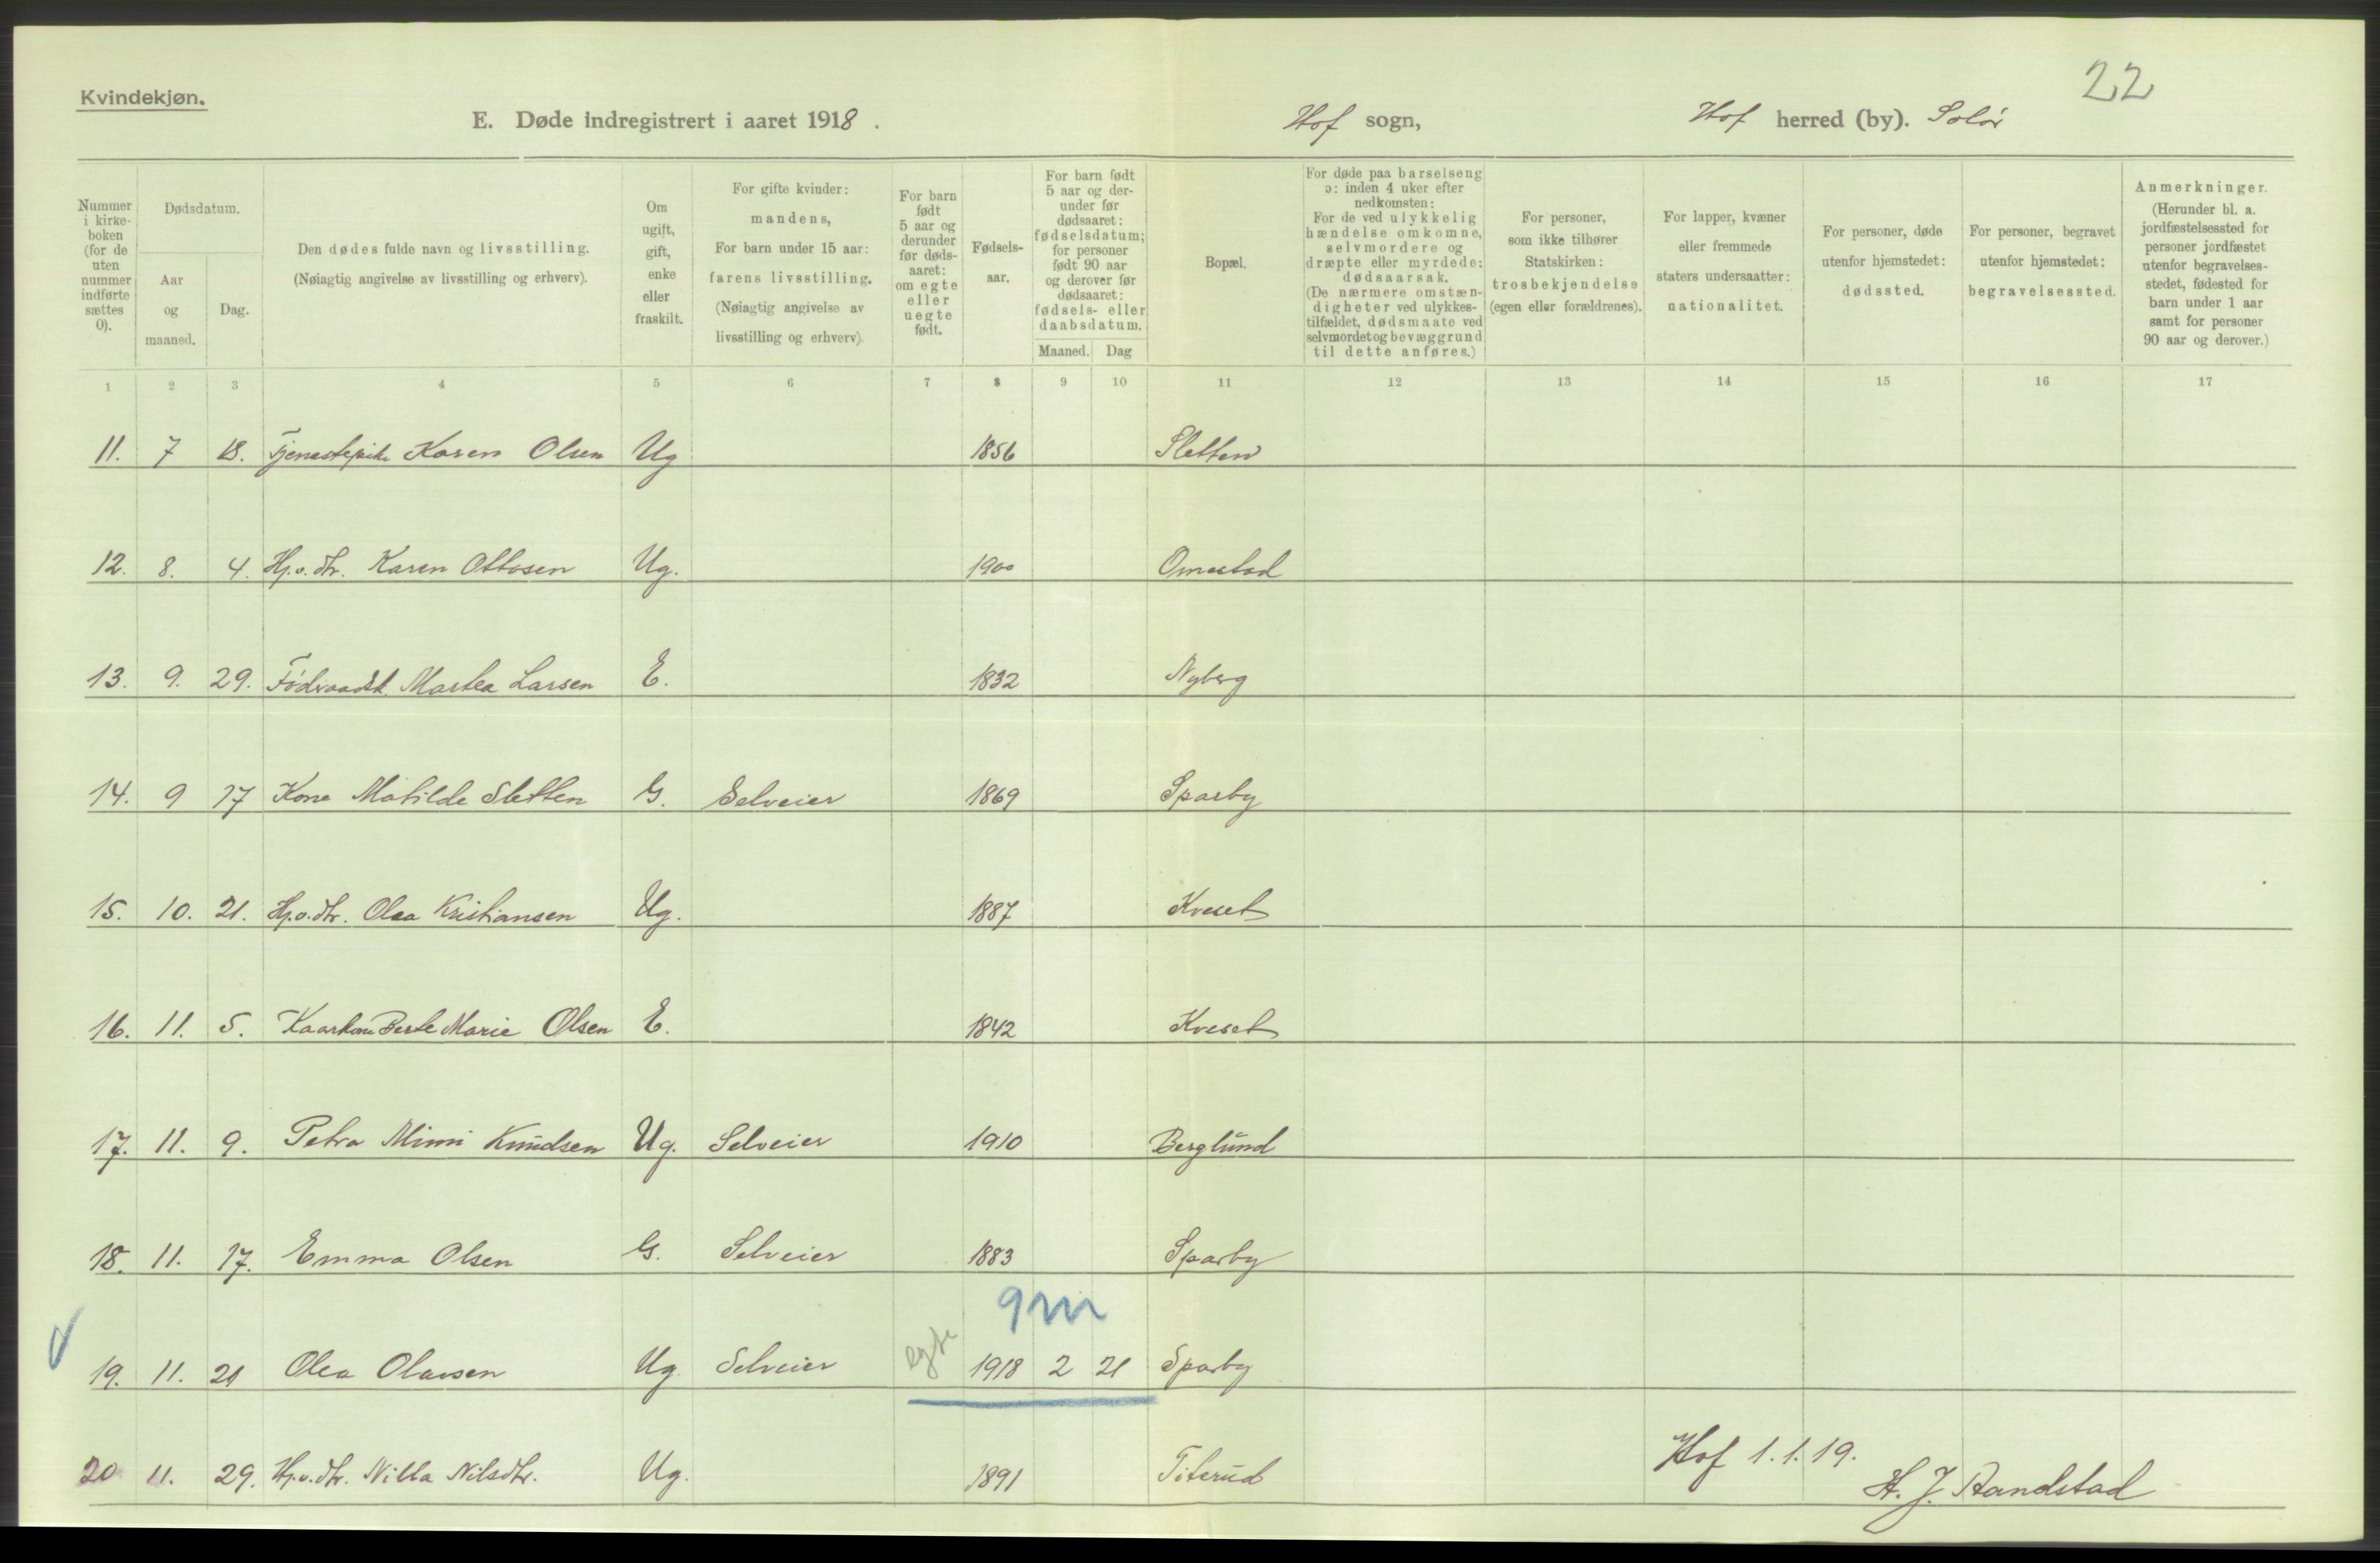 22
Kvindekjøn.
E. Døde indregistrert i aaret 1918.
Hof sogn,
Hof herred (by). Solør
Nummer i kirke-boken (for de uten nummer indførte sættes 0).
Dødsdatum.
Aar og maaned.
Dag.
Den dødes fulde navn og livsstilling.
(Nøiagtig angivelse av livsstilling og erhverv).
Om ugift, gift, enke eller fraskilt.
For gifte kvinder: mandens,
For barn under 15 aar: farens livsstilling.
(Nøiagtig angivelse av livsstilling og erhverv).
For barn født 5 aar og derunder før døds-aaret: om egte eller uegte født.
Fødsels-aar.
For barn født 5 aar og der-under før dødsaaret: fødselsdatum; for personer født 90 aar og derover før dødsaaret: fødsels- eller daabsdatum.
Maaned. Dag
Bopæl.
For døde paa barselseng ɔ: inden 4 uker efter nedkomsten:
For de ved ulykkelig hændelse omkomne, selvmordere og dræpte eller myrdede: dødsaarsak.
(De nærmere omstæn-digheter ved ulykkes-tilfældet, dødsmaate ved selvmordet og bevæggrund til dette anføres.)
For personer, som ikke tilhører Statskirken: trosbekjendelse (egen eller forældrenes).
For lapper, kvæner eller fremmede staters undersaatter: nationalitet.
For personer, døde utenfor hjemstedet: dødssted.
For personer, begravet utenfor hjemstedet: begravelsessted.
Anmerkninger.
(Herunder bl. a. jordfæstelsessted for personer jordfæstet utenfor begravelses-stedet, fødested for barn under 1 aar samt for personer 90 aar og derover.)
1 2 3 4 5 6 7 8 9 10 11 12 13 14 15 16 17
11. 7 18. Tjenestepike Karen Olsen Ug 1856 Sletten
12. 8. 4. Hp.v.dtr. Karen Ottosen Ug. 1900 Omestad
13. 9. 29. Martea Larsen E. 1832 Nyberg
14. 9 17 Kone Matilde Sletten G. Selveier 1869 Sparby
15. 10. 21. Hp.v.dtr. Olea Kristiansen Ug. 1887 Kveset
16. 11. 5. Kaarkone Berte Marie Olsen E. 1842 Kveset
17. 11. 9. Petra Mimi Knudsen Ug. Selveier 1910 Berglund
18. 11. 17. Emma Olsen G. Selveier 1883 Sparby
9 m
19. 11. 21 Olea Olavsen Ug. Selveier egte 1918 2 21 Sparby
20 11. 29. Hp.v.dtr. Nilla Nilsdtr. Ug. 1891 Titerud
Hof 1.1.19.
H. J. Randstad